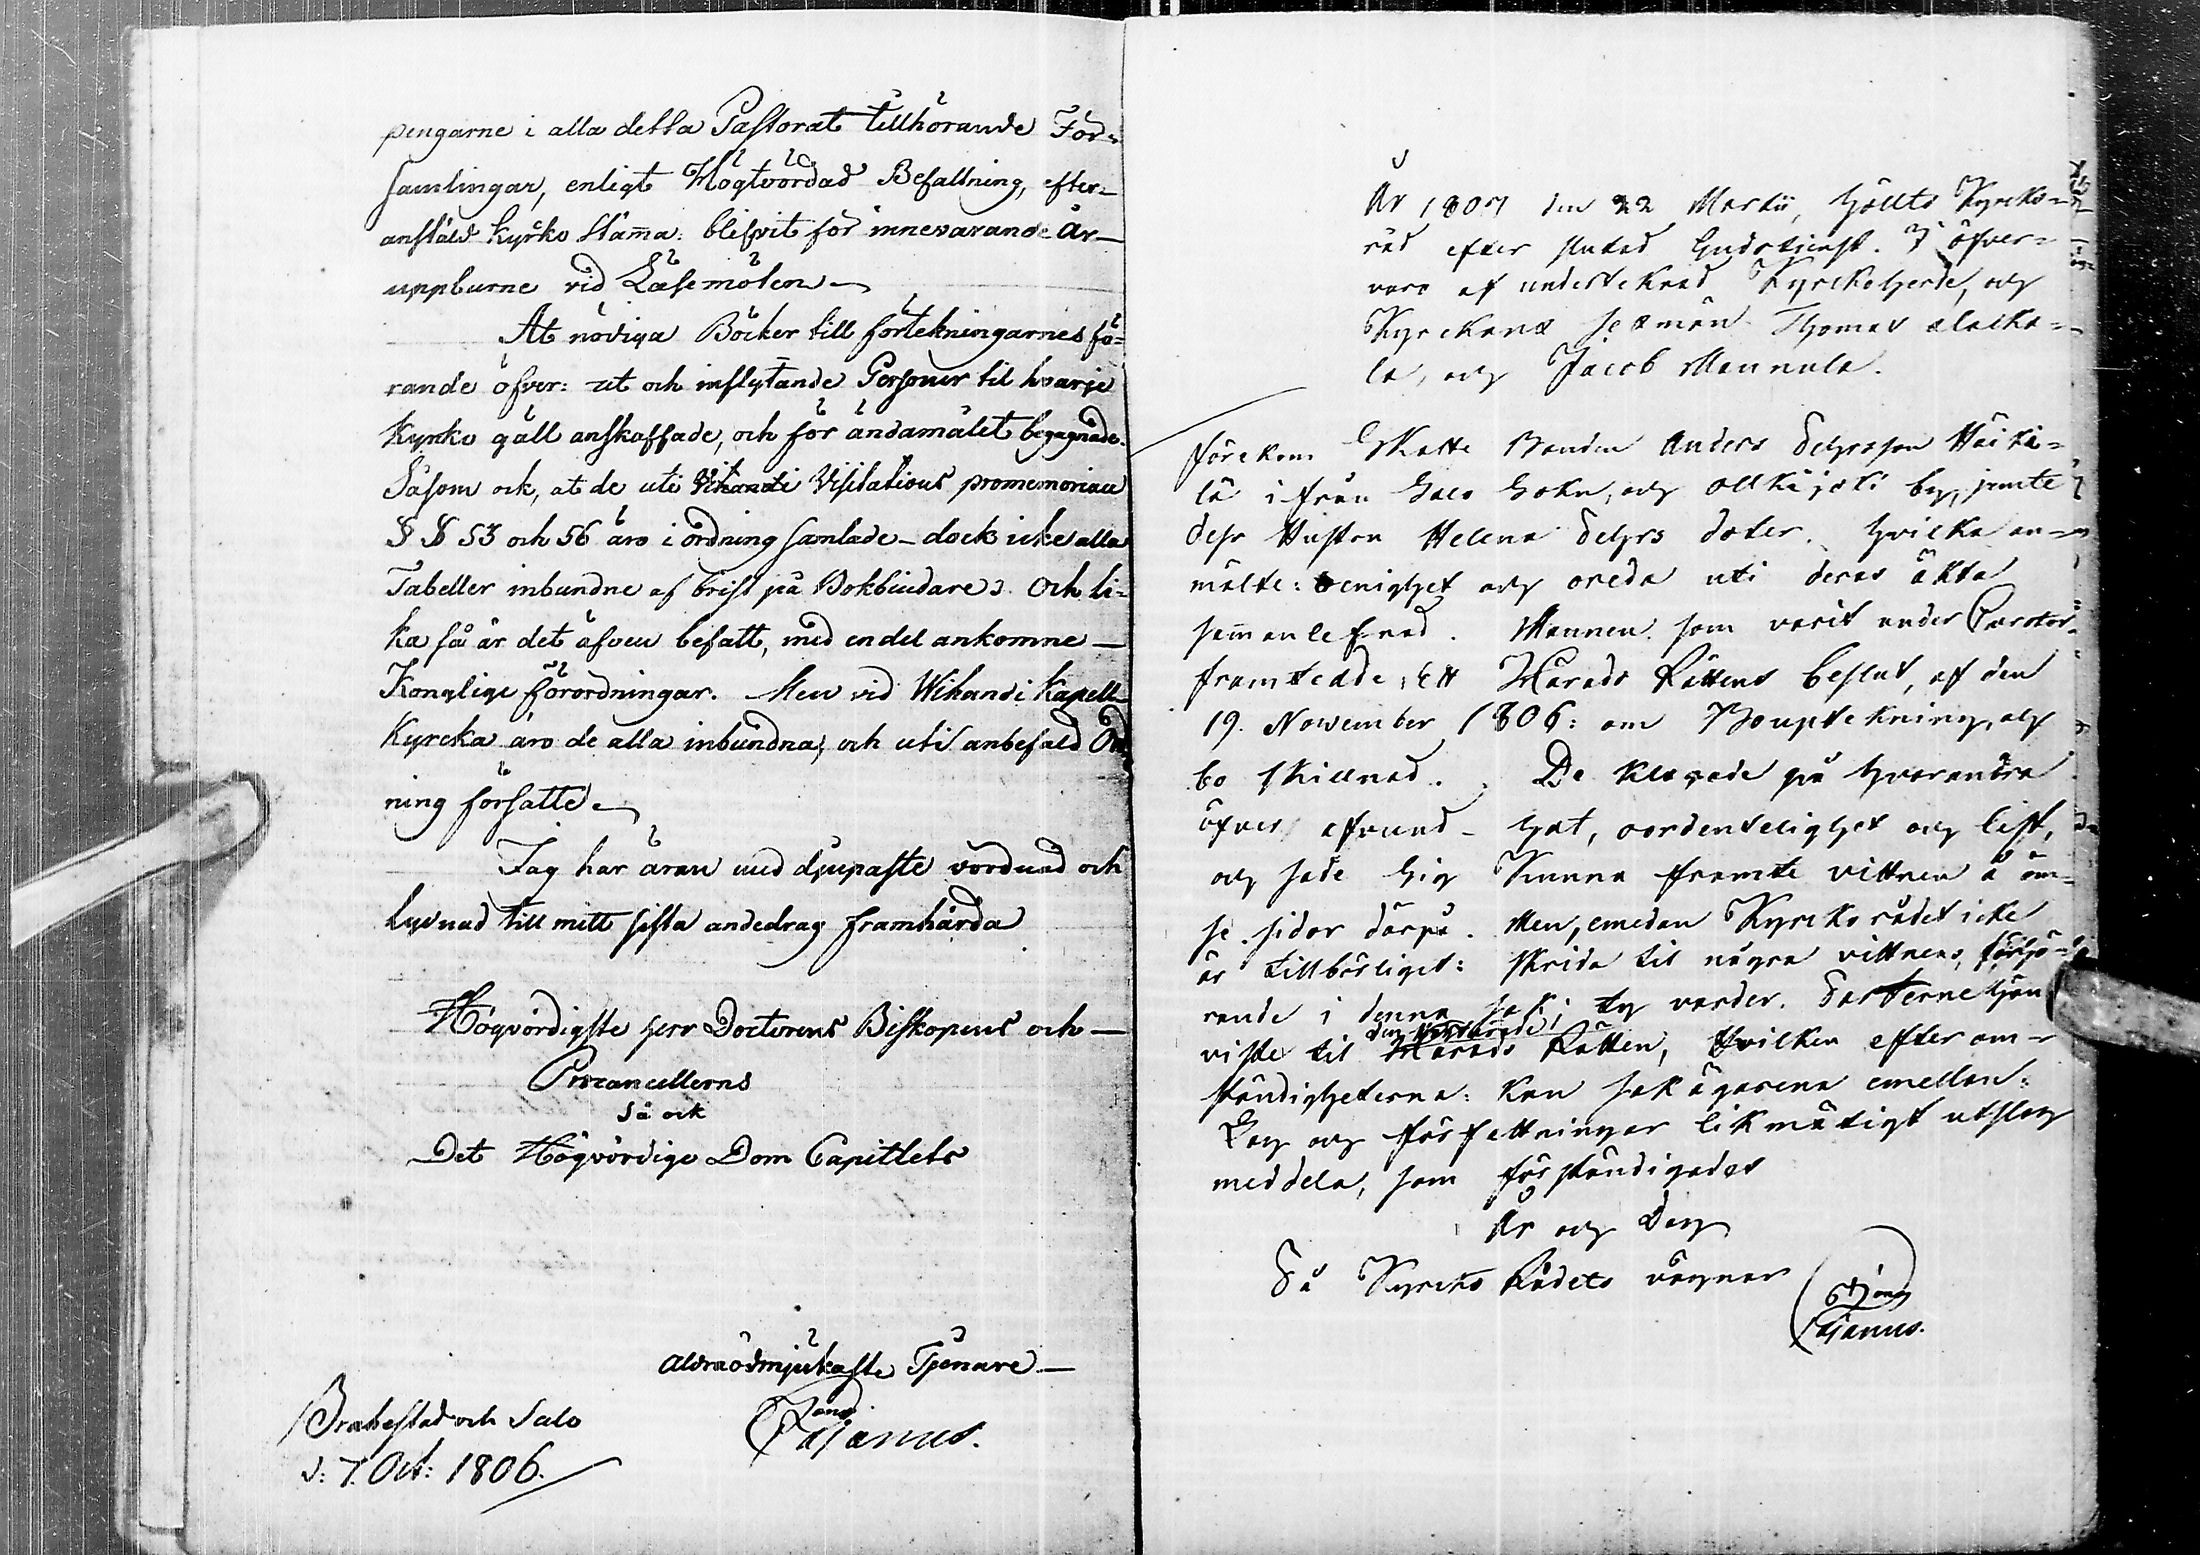 pengarne i alla detta Pastorat tillhörande För-
samlingar, enligt Högtvördad Befallning, efter-
anstäld kyrko stämma: blifvit för innevarande år
uppburne vid Läsemöten
At nödiga Böcker till förtekningarnes fö-
rande öfver: ut och inflytande Personer til hvarje
kyrko gäll anskaffade, och för ändamålet begagnade.
Såsom ock, at de uti Visitations promemorian
§ § 53 och 56 äro i ordning samlade - dock icke alla
Tabeller inbundne af brist på Bokbindare. Och li-
ka så är det äfven befatt, med en del ankomne
Kongliga förordningar. Men vid Wihandi Kapell
Kyrcka äro de alla inbundna, och uti anbefald Ord
ning försatte.
Jag har äran med djupaste vördnad och
lydnad till mitt sista andedrag framhärda
Högvördigste herr Doctorens Biskopens och
Procancellerns
så ock
Det Högvördige Dom Capitlets
aldraödmjukaste Tjenare
Brahestad och Salo
d: 7. Oct: 1806.
Jona
Lajanus.
År 1807 den 22 Martii, hölts Kyrcko-
råd efter slutad Gudstienst. I öfver-
varo af underteknad Kyrckoherde, och
Kyrckans sexmän Thomas
la, och Jacob Mannula.
Förekom Skatte Bonden Anders Pehrsson Häiki-
lä ifrån Salo Sokn, och Olkijoki by, jemte
dess Hustru Helena Pehrs doter. hvilka an-
mälte: oenighet och oreda uti deras äkta
samanlefnad. Mannen som varit under
framtedde, Ett Härads Rättens beslut, af den
19. November 1806: om Boupteckning, och
bo skillnad. De klagade på hvarandra
öfver afvund - hat, oordentelighet och list,
och sade sig kunna framte vittnen å öm-
se. sidor därpå. Men, emedan Kyrcko rådet icke
är tillbörligit: skrida til några vittnens, förhö-
rande i denna sak; ty varder. Parterne hän
viste til Härads Rätten, hvilken efter om-
ständigheterna: kan sakägarena emellan:
Lag och författningar likmätigt utslag
meddela, som förständigades
År och Dag
På Kyrcko Rådets vägnar
Jona
Lajanus.